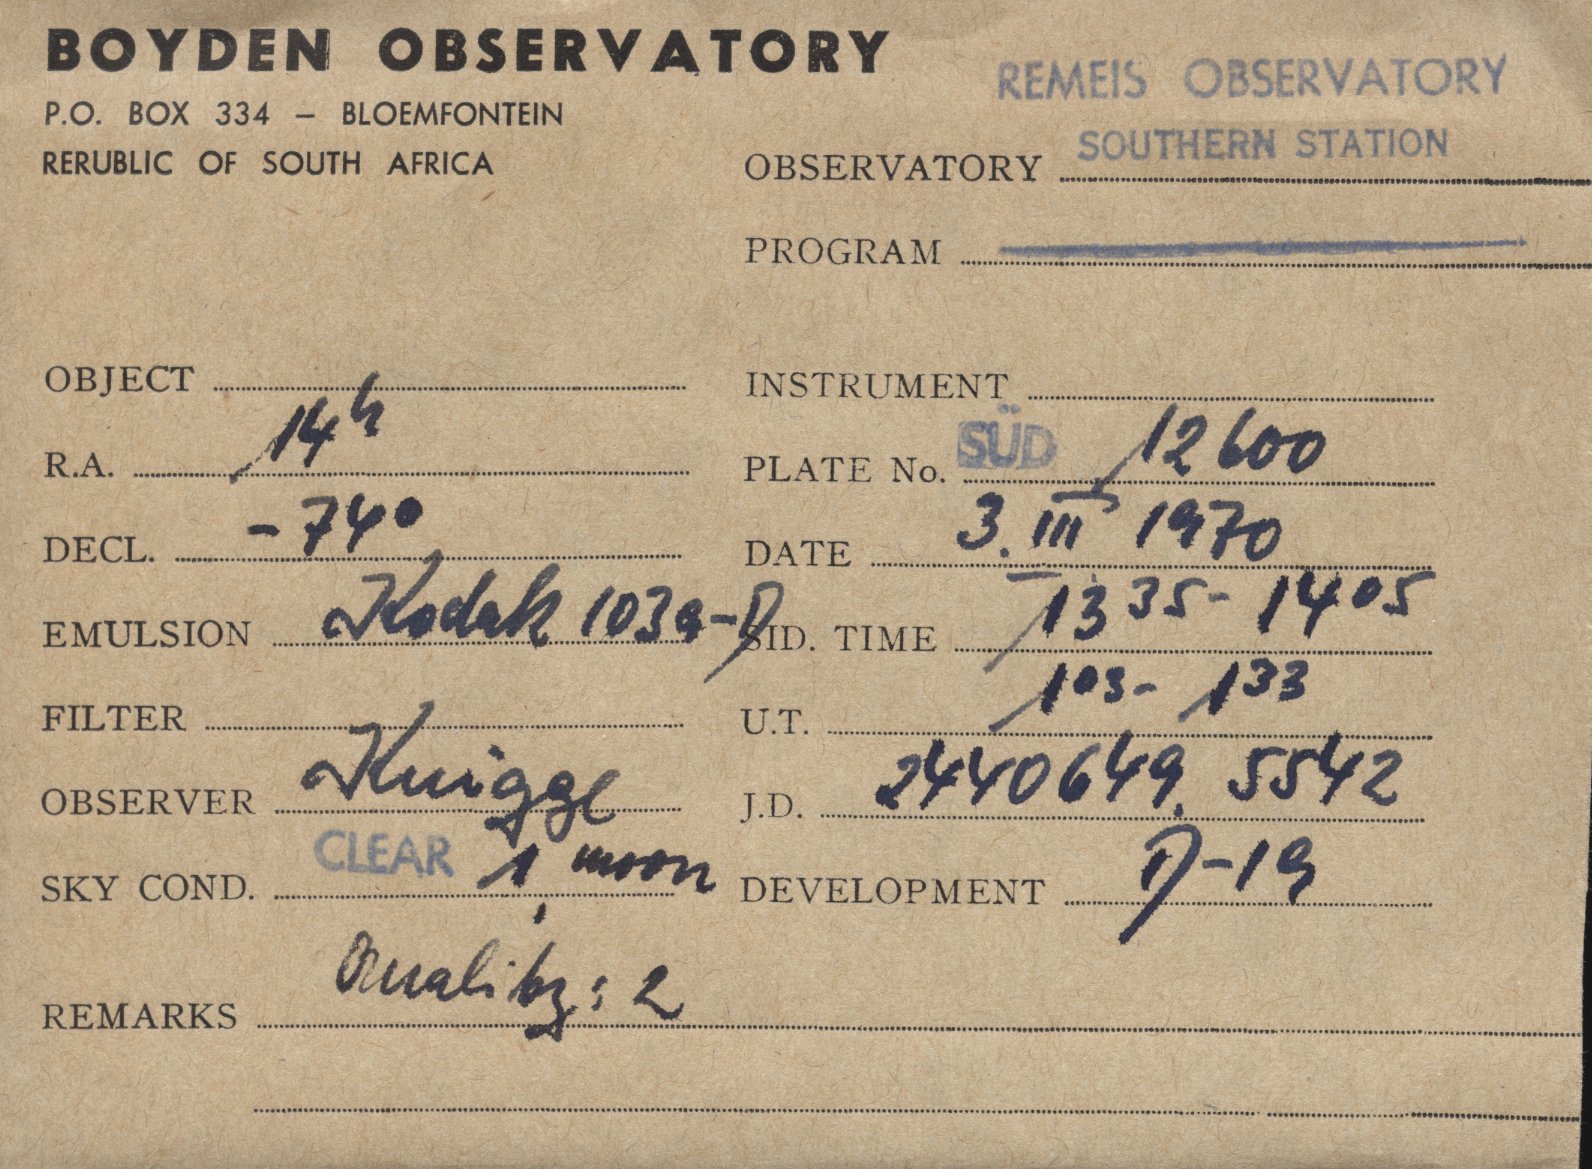 BOYDEN OBSERVATORY
P.O. BOX 334 – BLOEMFONTEIN
RERUBLIC OF SOUTH AFRICA
REMEIS OBSERVATORY
SOUTHERN STATION
OBSERVATORY
PROGRAM
OBJECT
INSTRUMENT
R.A. 14h
PLATE No. SÜD 12600
DECL. -74°
DATE 3. III 1970
EMULSION Kodak 103a-D
SID. TIME 13 35 - 14 05
FILTER
U.T. 1 03 - 1 33
OBSERVER Knigge
J.D. 2440649.5542
SKY COND. CLEAR 1, moon
DEVELOPMENT D-19
REMARKS Quality: 2